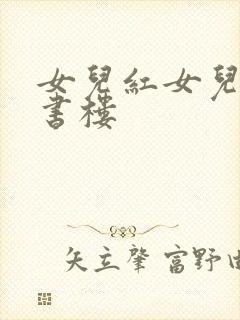 女兒紅女兒
書樓
矢立肇 富野由